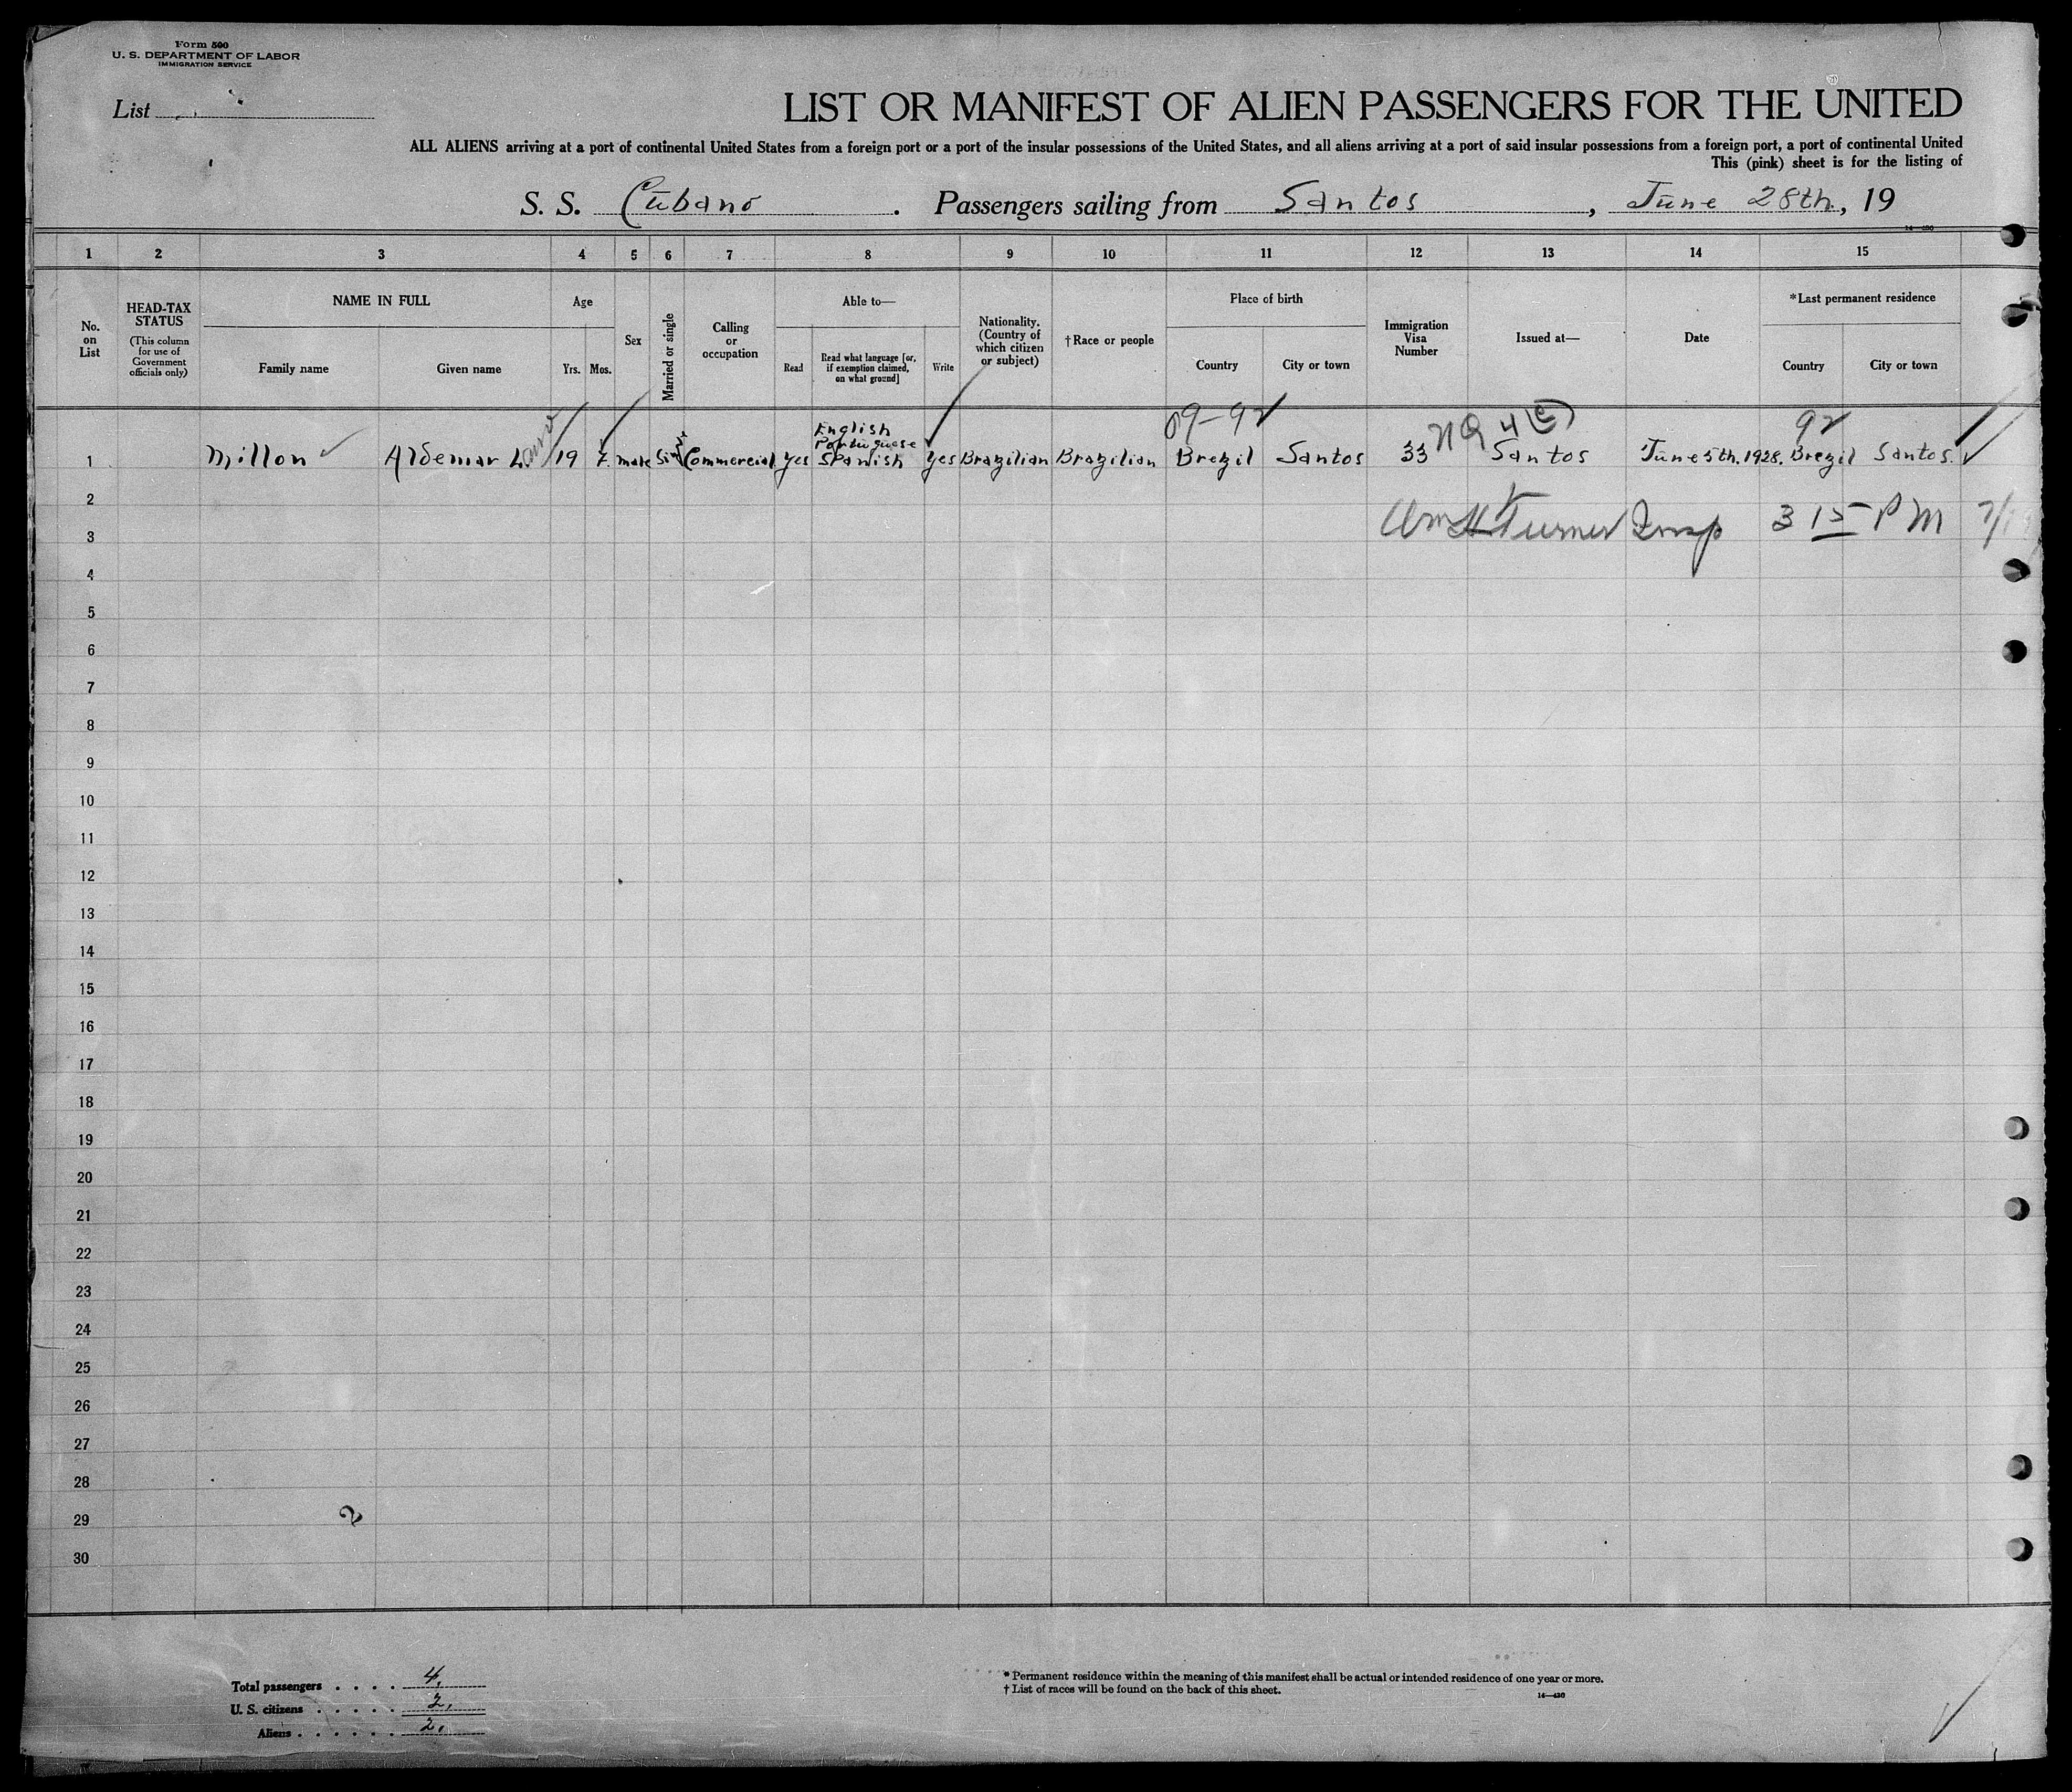 Form 500
U. S. DEPARTMENT OF LABOR
IMMIGRATION SERVICE
List
LIST OR MANIFEST OF ALIEN PASSENGERS FOR THE UNITED
ALL ALIENS arriving at a port of continental United States from a foreign port or a port of the insular possessions of the United States, and all aliens arriving at a port of said insular possessions from a foreign port, a port of continental United
This (pink) sheet is for the listing of
S. S. Cubano . Passengers sailing from Santos , June 28th, 19
14—430
1 2 3 4 5 6 7 8 9 10 11 12 13 14 15
No. on List
HEAD-TAX STATUS
(This column for use of Government officials only)
NAME IN FULL
Family name
Given name
Age
Yrs. Mos.
Sex
Married or single
Calling or occupation
Able to—
Read
Read what language [or, if exemption claimed, on what ground]
Write
Nationality. (Country of which citizen or subject)
† Race or people
Place of birth
Country
City or town
Immigration Visa Number
Issued at—
Date
*Last permanent residence
Country
City or town
09-92 NQ 4(c) 92
1 Millon Aldemar 19 7. male Commercial yes English Portuguese Spanish yes Brazilian Brazilian Brezil Santos 33 Santos June 5th. 1928. Brezil Santos.
2
Wm H Turner Insp 3 15 PM
3
4
5
6
7
8
9
10
11
12
13
14
15
16
17
18
19
20
21
22
23
24
25
26
27
28
29
30
2
Total passengers . . . . 4.
U. S. citizens . . . . . 2.
Aliens . . . . . . 2.
* Permanent residence within the meaning of this manifest shall be actual or intended residence of one year or more.
† List of races will be found on the back of this sheet.
14—430